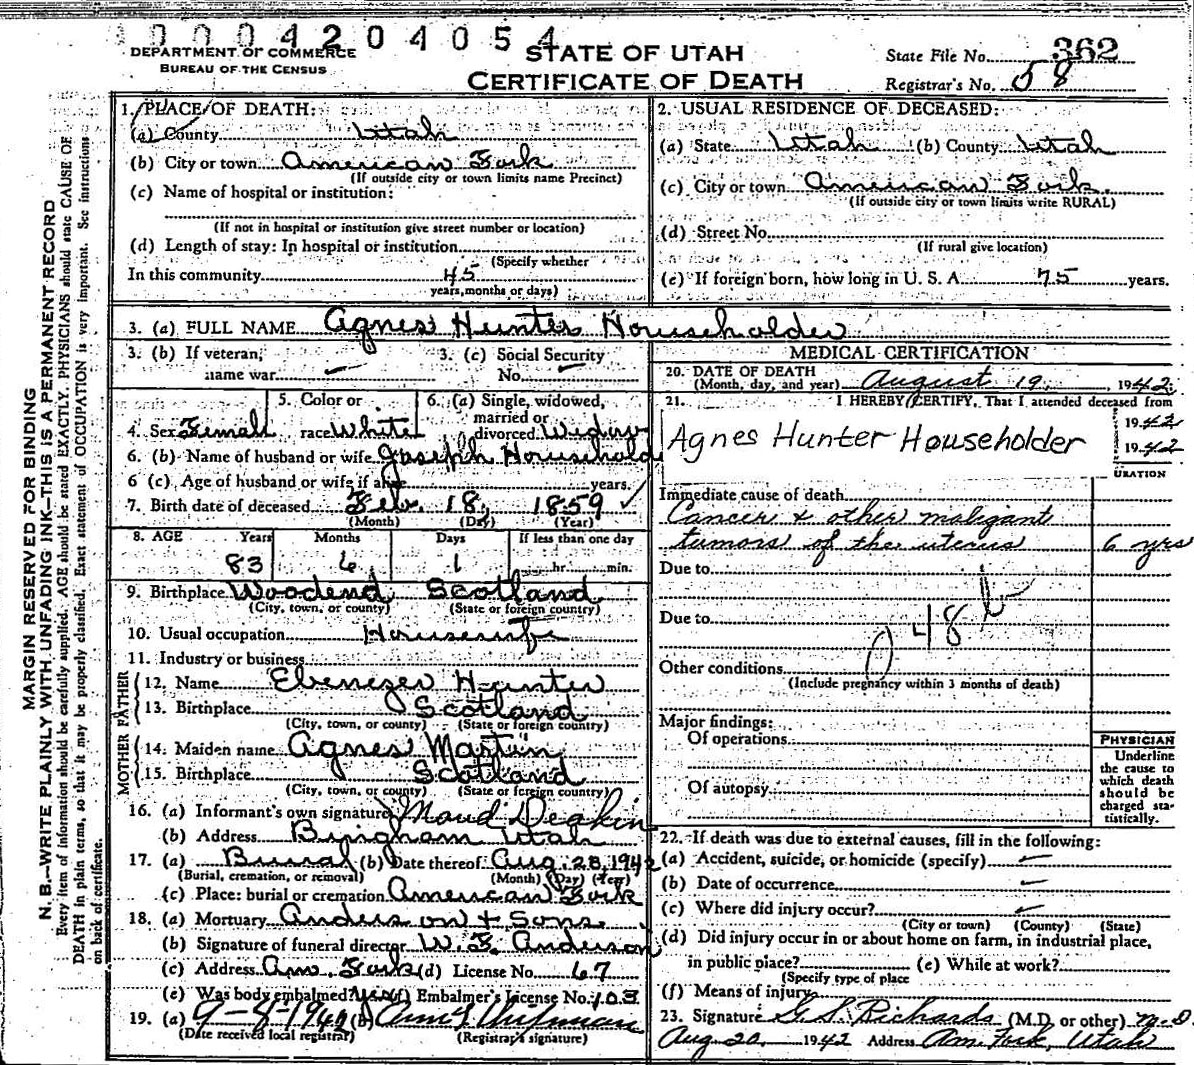 0004204054
DEPARTMENT OF COMMERCE
BUREAU OF THE CENSUS
STATE OF UTAH
CERTIFICATE OF DEATH
State File No. 362
Registrar's No. 58
MARGIN RESERVED FOR BINDING
N. B.—WRITE PLAINLY WITH UNFADING INK—THIS IS A PERMANENT RECORD
Every item of information should be carefully supplied. AGE should be stated EXACTLY. PHYSICIANS should state CAUSE OF
DEATH in plain terms, so that it may be properly classified. Exact statement of OCCUPATION is very important. See instructions
on back of certificate.
1. PLACE OF DEATH:
(a) County Utah
(b) City or town American Fork
(If outside city or town limits name Precinct)
(c) Name of hospital or institution:
(If not in hospital or institution give street number or location)
(d) Length of stay: In hospital or institution
(Specify whether
In this community 45
years, months or days)
2. USUAL RESIDENCE OF DECEASED:
(a) State Utah (b) County Utah
(c) City or town American Fork
(If outside city or town limits write RURAL)
(d) Street No.
(If rural give location)
(e) If foreign born, how long in U. S. A. 75 years.
3. (a) FULL NAME Agnes Hunter Householder
3. (b) If veteran, name war 3. (c) Social Security No.
4. Sex Female 5. Color or race White 6. (a) Single, widowed, married or divorced Widow
6. (b) Name of husband or wife Joseph Householde
6 (c) Age of husband or wife if alive years.
7. Birth date of deceased Feb. 18, 1859
(Month) (Day) (Year)
8. AGE Years Months Days If less than one day
83 6 1 hr. min.
9. Birthplace Woodend Scotland
(City, town, or county) (State or foreign country)
10. Usual occupation Housewife
11. Industry or business
FATHER
12. Name Ebenezer Hunter
13. Birthplace Scotland
(City, town, or county) (State or foreign country)
MOTHER
14. Maiden name Agnes Martin
15. Birthplace Scotland
(City, town, or county) (State or foreign country)
16. (a) Informant's own signature Maud Deakin
(b) Address Bingham Utah
17. (a) Burial (b) Date thereof Aug. 23, 1942
(Burial, cremation, or removal) (Month) (Day) (Year)
(c) Place: burial or cremation American Fork
18. (a) Mortuary Anderson + Sons
(b) Signature of funeral director W. E. Anderson
(c) Address Am. Fork (d) License No. 67
(e) Was body embalmed? Yes (f) Embalmer's License No. 103
19. (a) 9-8-1942 (b) Chipman
(Date received local registrar) (Registrar's signature)
MEDICAL CERTIFICATION
20. DATE OF DEATH
(Month, day, and year) August 19, 1942
21. I HEREBY CERTIFY, That I attended deceased from
1942
Agnes Hunter Householder
1942
URATION
Immediate cause of death
Cancer & other maligant
tumors of the uterus 6 yrs
Due to
Due to
48 b
Other conditions
(Include pregnancy within 3 months of death)
Major findings:
Of operations
Of autopsy
PHYSICIAN
Underline
the cause to
which death
should be
charged sta-
tistically.
22. If death was due to external causes, fill in the following:
(a) Accident, suicide, or homicide (specify)
(b) Date of occurrence
(c) Where did injury occur?
(City or town) (County) (State)
(d) Did injury occur in or about home on farm, in industrial place,
in public place? (e) While at work?
(Specify type of place
(f) Means of injury
23. Signature G. S. Richards (M.D. or other) M.D.
Aug 20, 1942 Address Am. Fork, Utah